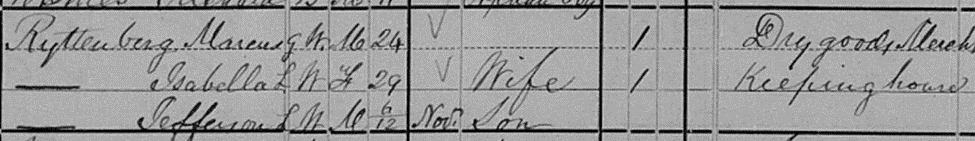 Ryttenberg Marcus G W M 24 √ 1 Dry goods Merch
— Isabella L W F 29 √ Wife 1 Keeping house
— Jefferson L W M 6/12 Nov. Son